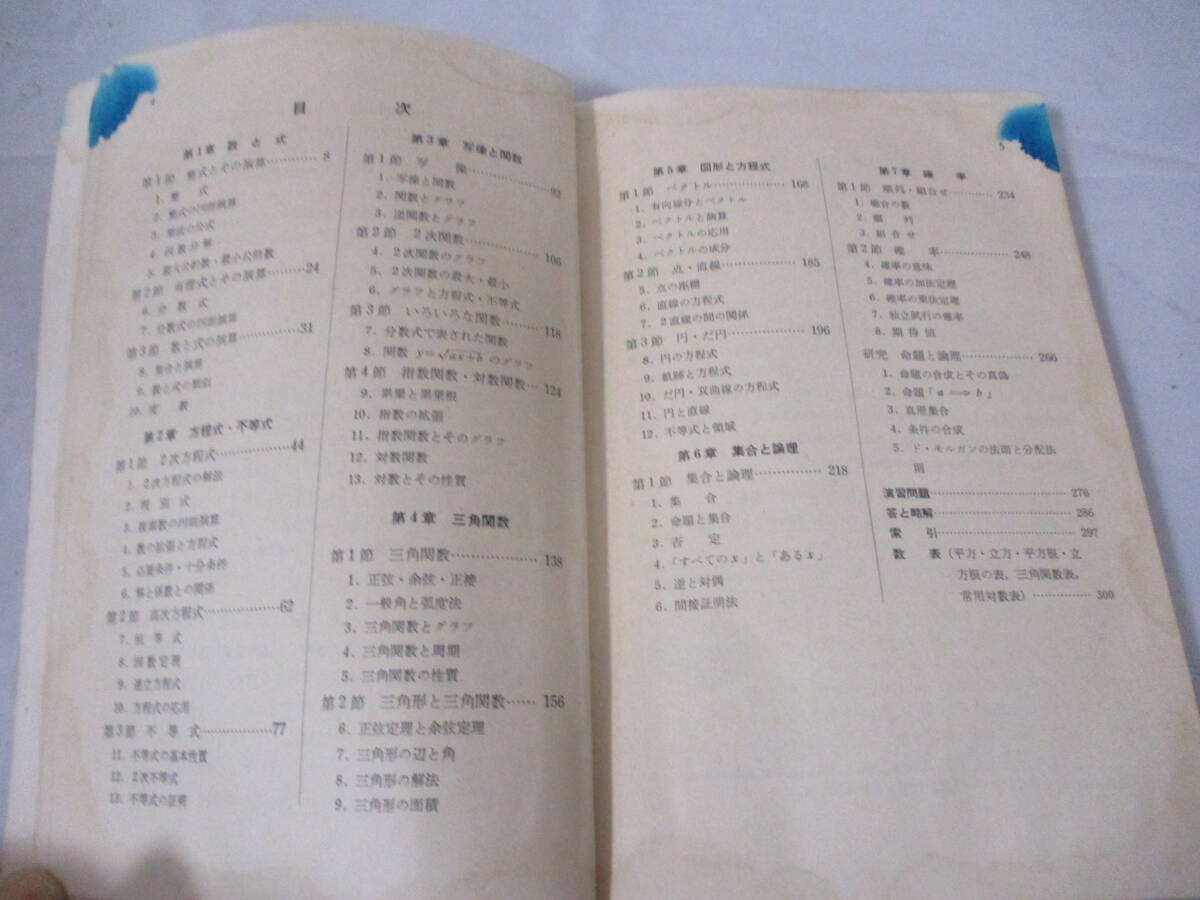 4
目 次
第1章 数と式
第1節 整式とその演算………… 8
1. 整 式
2. 整式の四則演算
3. 乗法の公式
4. 因数分解
5. 最大公約数・最小公倍数
第2節 有理式とその演算………24
6. 分 数 式
7. 分数式の四則演算
第3節 数と式の演算…………31
8. 集合と演算
9. 数と式の類似
10. 実 数
第2章 方程式・不等式
第1節 2次方程式……………44
1. 2次方程式の解法
2. 判 別 式
3. 複素数の四則演算
4. 数の拡張と方程式
5. 必要条件・十分条件
6. 解と係数との関係
第2節 高次方程式……………62
7. 恒 等 式
8. 因数定理
9. 連立方程式
10. 方程式の応用
第3節 不 等 式………………77
11. 不等式の基本性質
12. 2次不等式
13. 不等式の証明
第3章 写像と関数
第1節 写 像………………92
1. 写像と関数
2. 関数とグラフ
3. 逆関数とグラフ
第2節 2次関数………………106
4. 2次関数のグラフ
5. 2次関数の最大・最小
6. グラフと方程式・不等式
第3節 いろいろな関数………118
7. 分数式で表された関数
8. 関数 y=√ax+b のグラフ
第4節 指数関数・対数関数…124
9. 累乗と累乗根
10. 指数の拡張
11. 指数関数とそのグラフ
12. 対数関数
13. 対数とその性質
第4章 三角関数
第1節 三角関数………………138
1. 正弦・余弦・正接
2. 一般角と弧度法
3. 三角関数とグラフ
4. 三角関数と周期
5. 三角関数の性質
第2節 三角形と三角関数……156
6. 正弦定理と余弦定理
7. 三角形の辺と角
8. 三角形の解法
9. 三角形の面積
5
第5章 図形と方程式
第1節 ベクトル………………168
1. 有向線分とベクトル
2. ベクトルと演算
3. ベクトルの応用
4. ベクトルの成分
第2節 点・直線………………185
5. 点の座標
6. 直線の方程式
7. 2直線の間の関係
第3節 円・だ円………………196
8. 円の方程式
9. 軌跡と方程式
10. だ円・双曲線の方程式
11. 円と直線
12. 不等式と領域
第6章 集合と論理
第1節 集合と論理……………218
1. 集 合
2. 命題と集合
3. 否 定
4. 「すべてのx」と「あるx」
5. 逆と対偶
6. 間接証明法
第7章 確 率
第1節 順列・組合せ…………234
1. 場合の数
2. 順 列
3. 組合せ
第2節 確 率…………………248
4. 確率の意味
5. 確率の加法定理
6. 確率の乗法定理
7. 独立試行の確率
8. 期待値
研究 命題と論理………………266
1. 命題の合成とその真偽
2. 命題「a ⟹ b」
3. 真理集合
4. 条件の合成
5. ド・モルガンの法則と分配法
則
演習問題…………………………276
答と略解…………………………286
索 引……………………………297
数 表(平方・立方・平方根・立
方根の表,三角関数表,
常用対数表)……………300